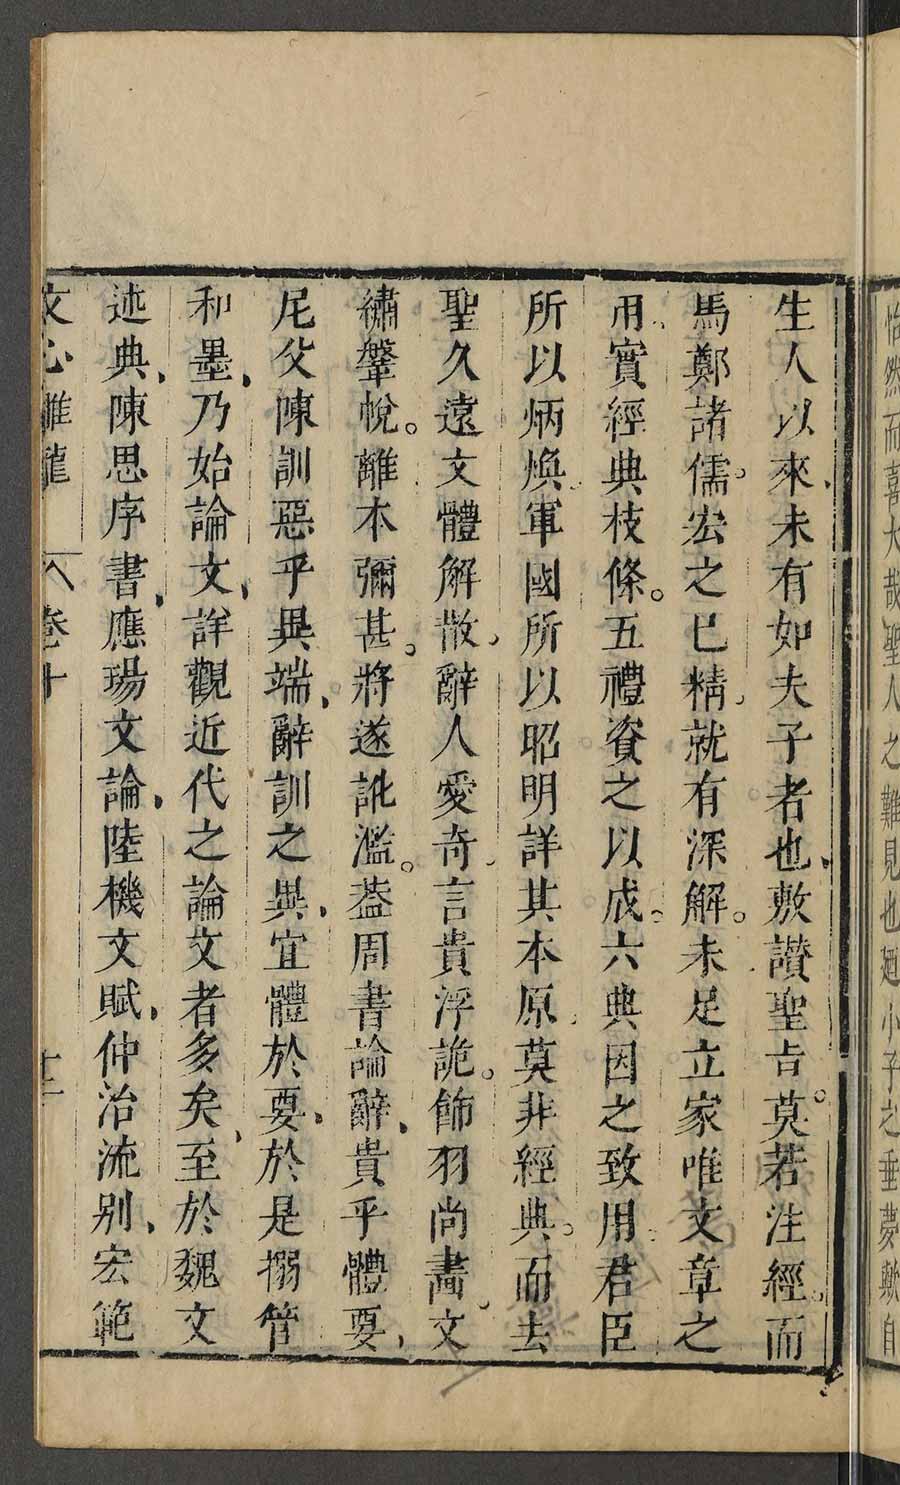 怡然而喜大哉聖人之難見也廼小子之垂夢歟自
生人以來未有如夫子者也敷讃聖旨莫若注經而
馬鄭諸儒宏之已精就有深解未足立家唯文章之
用實經典枝條五禮資之以成六典因之致用君臣
所以炳煥軍國所以昭明詳其本原莫非經典而去
聖久遠文體解散辭人愛奇言貴浮詭飾羽尚畫文
繡鞶帨離本彌甚將遂訛濫葢周書論辭貴乎體要
尼父陳訓惡乎異端辭訓之異宜體於要於是搦管
和墨乃始論文詳觀近代之論文者多矣至於魏文
述典陳思序書應瑒文論陸機文賦仲治流别宏範
文心雕龍 卷十 十二